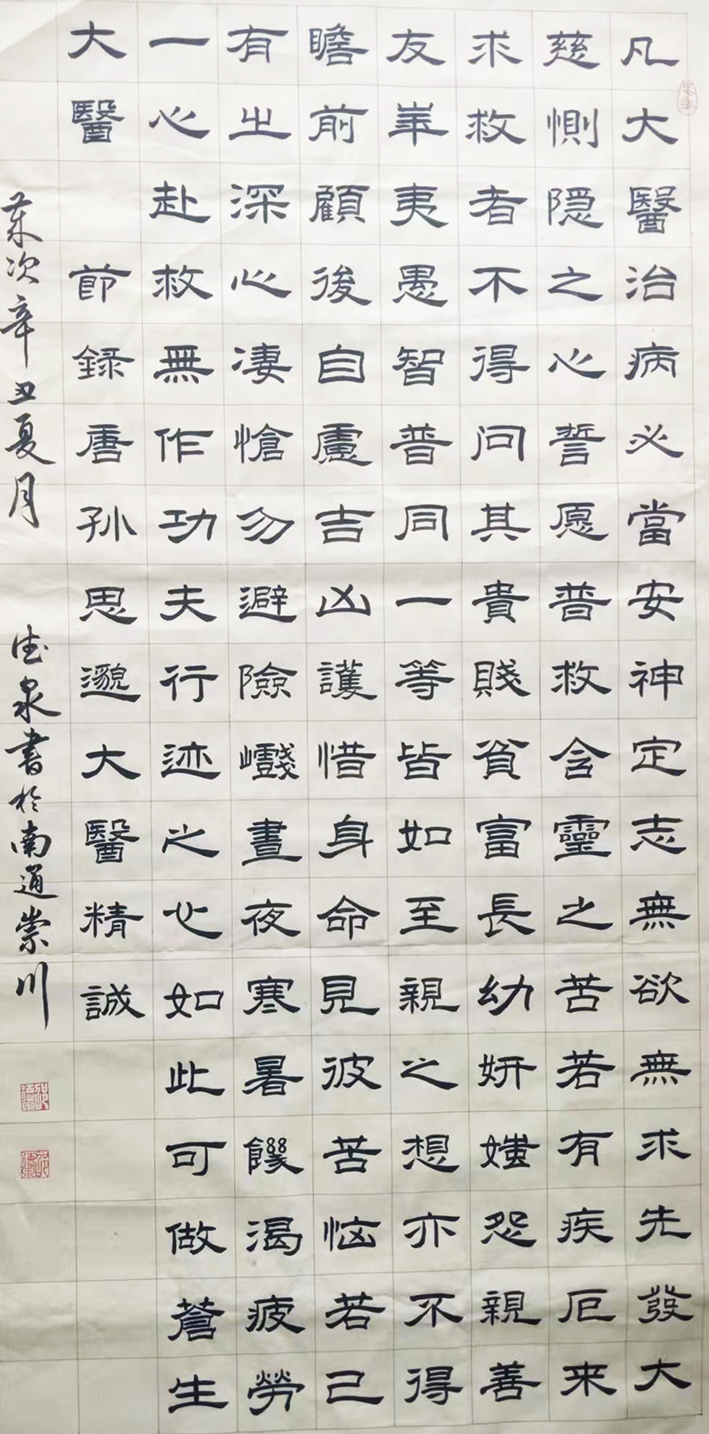 凡大醫治病必當安神定志無欲無求先發大
慈惻隠之心誓愿普救含靈之苦若有疾厄来
求救者不得问其貴賤貧富長幼妍媸怨親善
友崋夷愚智普同一等皆如至親之想亦不得
瞻前顧後自慮吉凶護惜身命見彼苦恼若己
有之深心凄愴勿避險巇晝夜寒暑饑渴疲勞
一心赴救無作功夫行迹之心如此可做蒼生
大醫 節録唐孫思邈大醫精誠
歲次辛丑夏月 德泉書於南通崇川